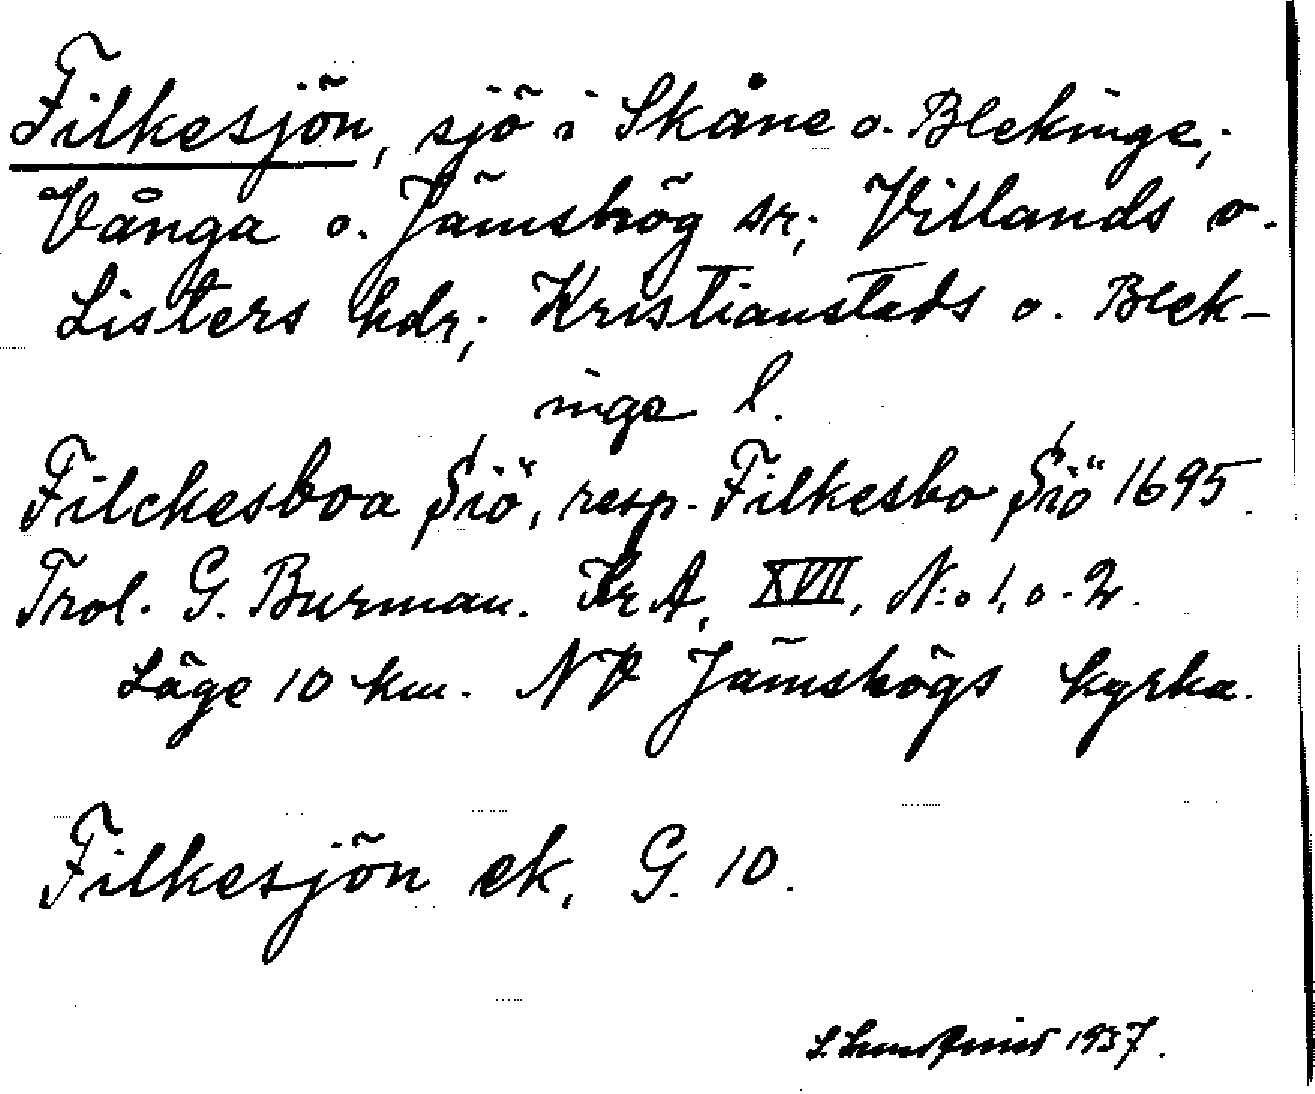 Filkesjön, sjö i Skåne o. Blekinge;
Vånga o. Jämshög sr; Villands o.
Listers hdr; Kristianstads o. Blek-
inge l.
Filckesboa Siö, resp. Filkesbo Siö 1695.
Trol. G. Burman. Kr A, XVII, N:o 1, o. 2.
Läge 10 km. NV Jämshögs kyrka.
Filkesjön ek, G. 10.
1937.